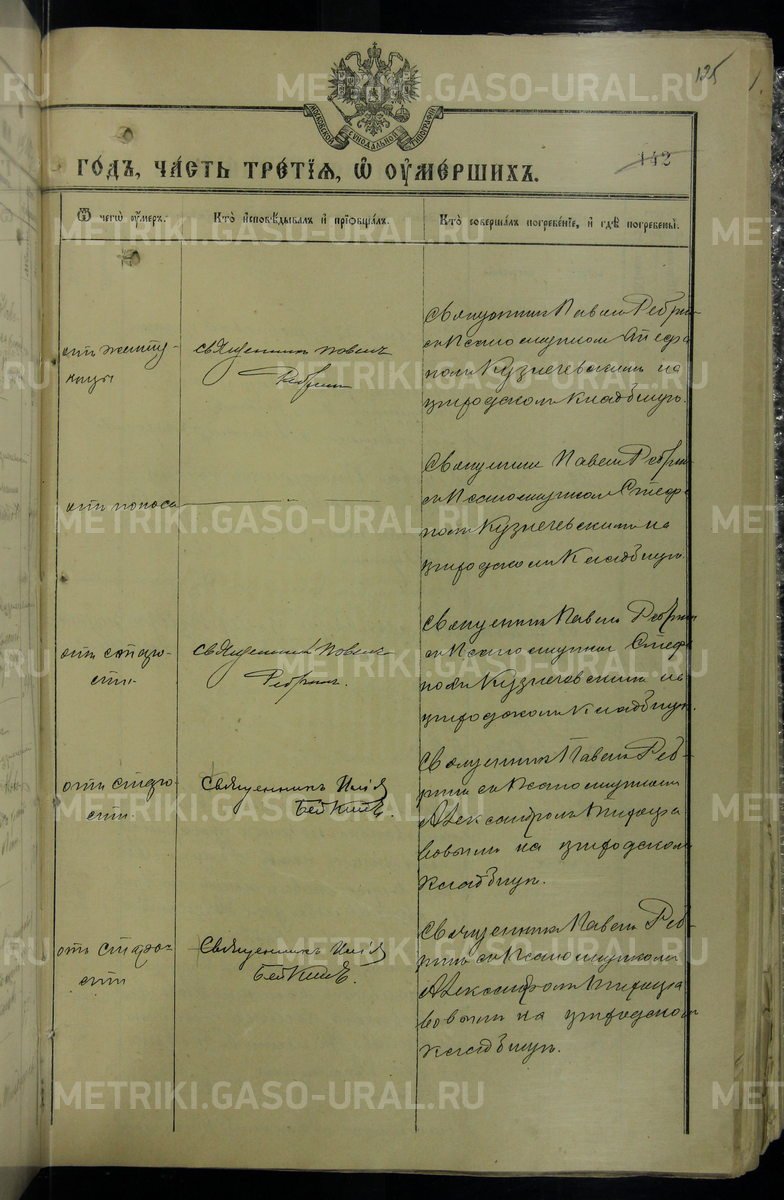 125
142
МОСКОВСКОЙ СѴНОДАЛЬНОЙ ТИПОГРАФІИ
ГОДЪ, ЧАСТЬ ТРЕТІЯ, Ѡ ОУМЕРШИХЪ.
Ѿ чегѡ оумеръ.
Кто исповѣдывалъ и пріобщалъ.
Кто совершалъ погребеніе, и гдѣ погребены.
отъ
священникъ Павелъ
Ребринъ
Священникъ Павелъ Ребринъ
съ Псаломщикомъ Стефа
номъ Кузнечевскимъ на
приходскомъ кладбищѣ.
отъ поноса
Священникъ Павелъ Ребринъ
съ Псаломщикомъ Стефа
номъ Кузнечевскимъ на
приходскомъ кладбищѣ.
отъ старо-
сти
священникъ Павелъ
Ребринъ.
Священникъ Павелъ Ребринъ
съ Псаломщикомъ Стефа
номъ Кузнечевскимъ на
приходскомъ кладбищѣ.
отъ старо
сти.
Священникъ Илія
Священникъ Павелъ Реб-
ринъ съ Псаломщикомъ
Александромъ
на приходскомъ
кладбищѣ.
отъ старо-
сти
Священникъ Илія
Священникъ Павелъ Реб-
ринъ съ Псаломщикомъ
Александромъ
на приходскомъ
кладбищѣ.
METRIKI.GASO-URAL.RU